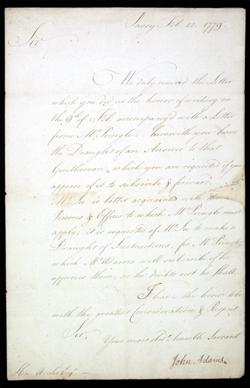 Passy Feb. 12. 1779
Sir
We duly received the Letter
which you did us the honour of writing on
the 9th of Feb. accompanied with a Letter
from Mr. Pringle. herewith you have
the Draught of an Answer to that
Gentleman, which you are requested if you
approve of it to subscribe & forward.
is better acquainted with the
Powers & Offices to which Mr. Pringle must
apply, it is requested of to make a
Draught of Instructions, for Mr. Pringle
which Mr. Adams will subscribe if he
approves them, as he doubts not he shall.
I have the honour to be
with the greatest Consideration & Respect
Sir,
Your most obt. humble Servant
John Adams.